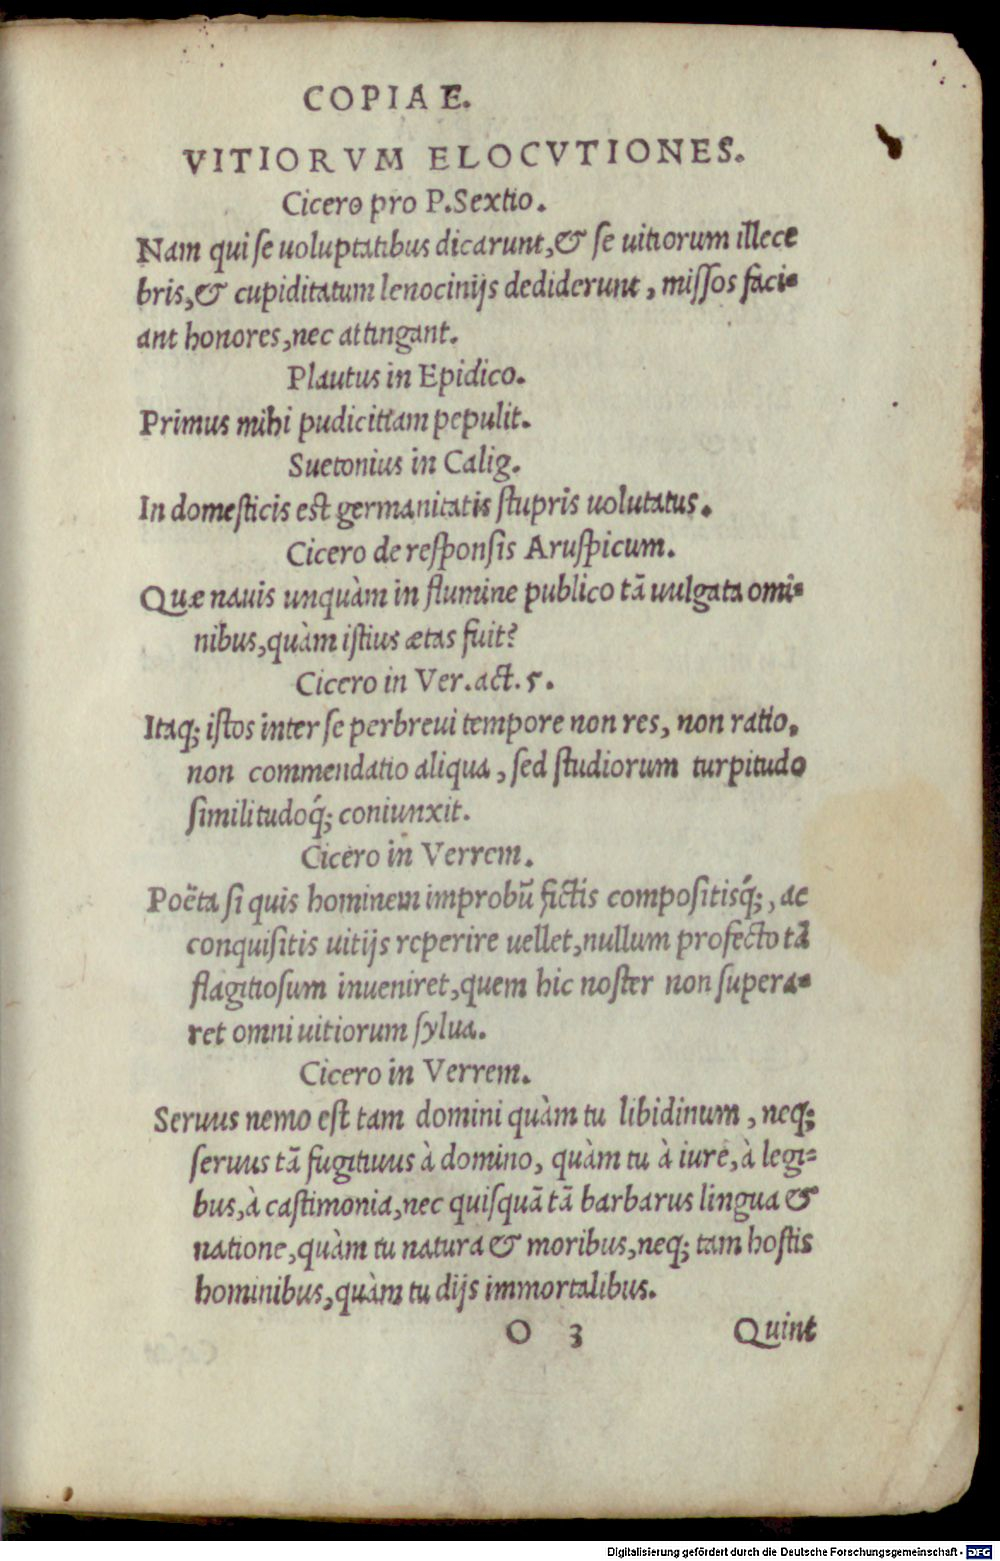 COPIAE.
VITIORVM ELOCVTIONES.
Cicero pro P.Sextio.
Nam qui se uoluptatibus dicarunt,& se uitiorum illece
bris,& cupiditatum lenocinijs dediderunt, missos faci-
ant honores,nec attingant.
Plautus in Epidico.
Primus mihi pudicitiam pepulit.
Suetonius in Calig.
In domesticis est germanitatis stupris uolutatus.
Cicero de responsis Aruspicum.
Quæ nauis unquàm in flumine publico tã uulgata omi-
nibus,quàm istius ætas fuit?
Cicero in Ver.act.5.
Itaq; istos inter se perbreui tempore non res, non ratio,
non commendatio aliqua, sed studiorum turpitudo
similitudoq́; coniunxit.
Cicero in Verrem.
Poëta si quis hominem improbũ fictis compositisq́;, ac
conquisitis uitijs reperire uellet,nullum profecto tã
flagitiosum inueniret,quem hic noster non supera-
ret omni uitiorum sylua.
Cicero in Verrem.
Seruus nemo est tam domini quàm tu libidinum, neq;
seruus tã fugitiuus à domino, quàm tu à iure,à legi-
bus,à castimonia,nec quisquã tã barbarus lingua &
natione,quàm tu natura & moribus,neq; tam hostis
hominibus,quàm tu dijs immortalibus.
O 3 Quint
Digitalisierung gefördert durch die Deutsche Forschungsgemeinschaft - DFG